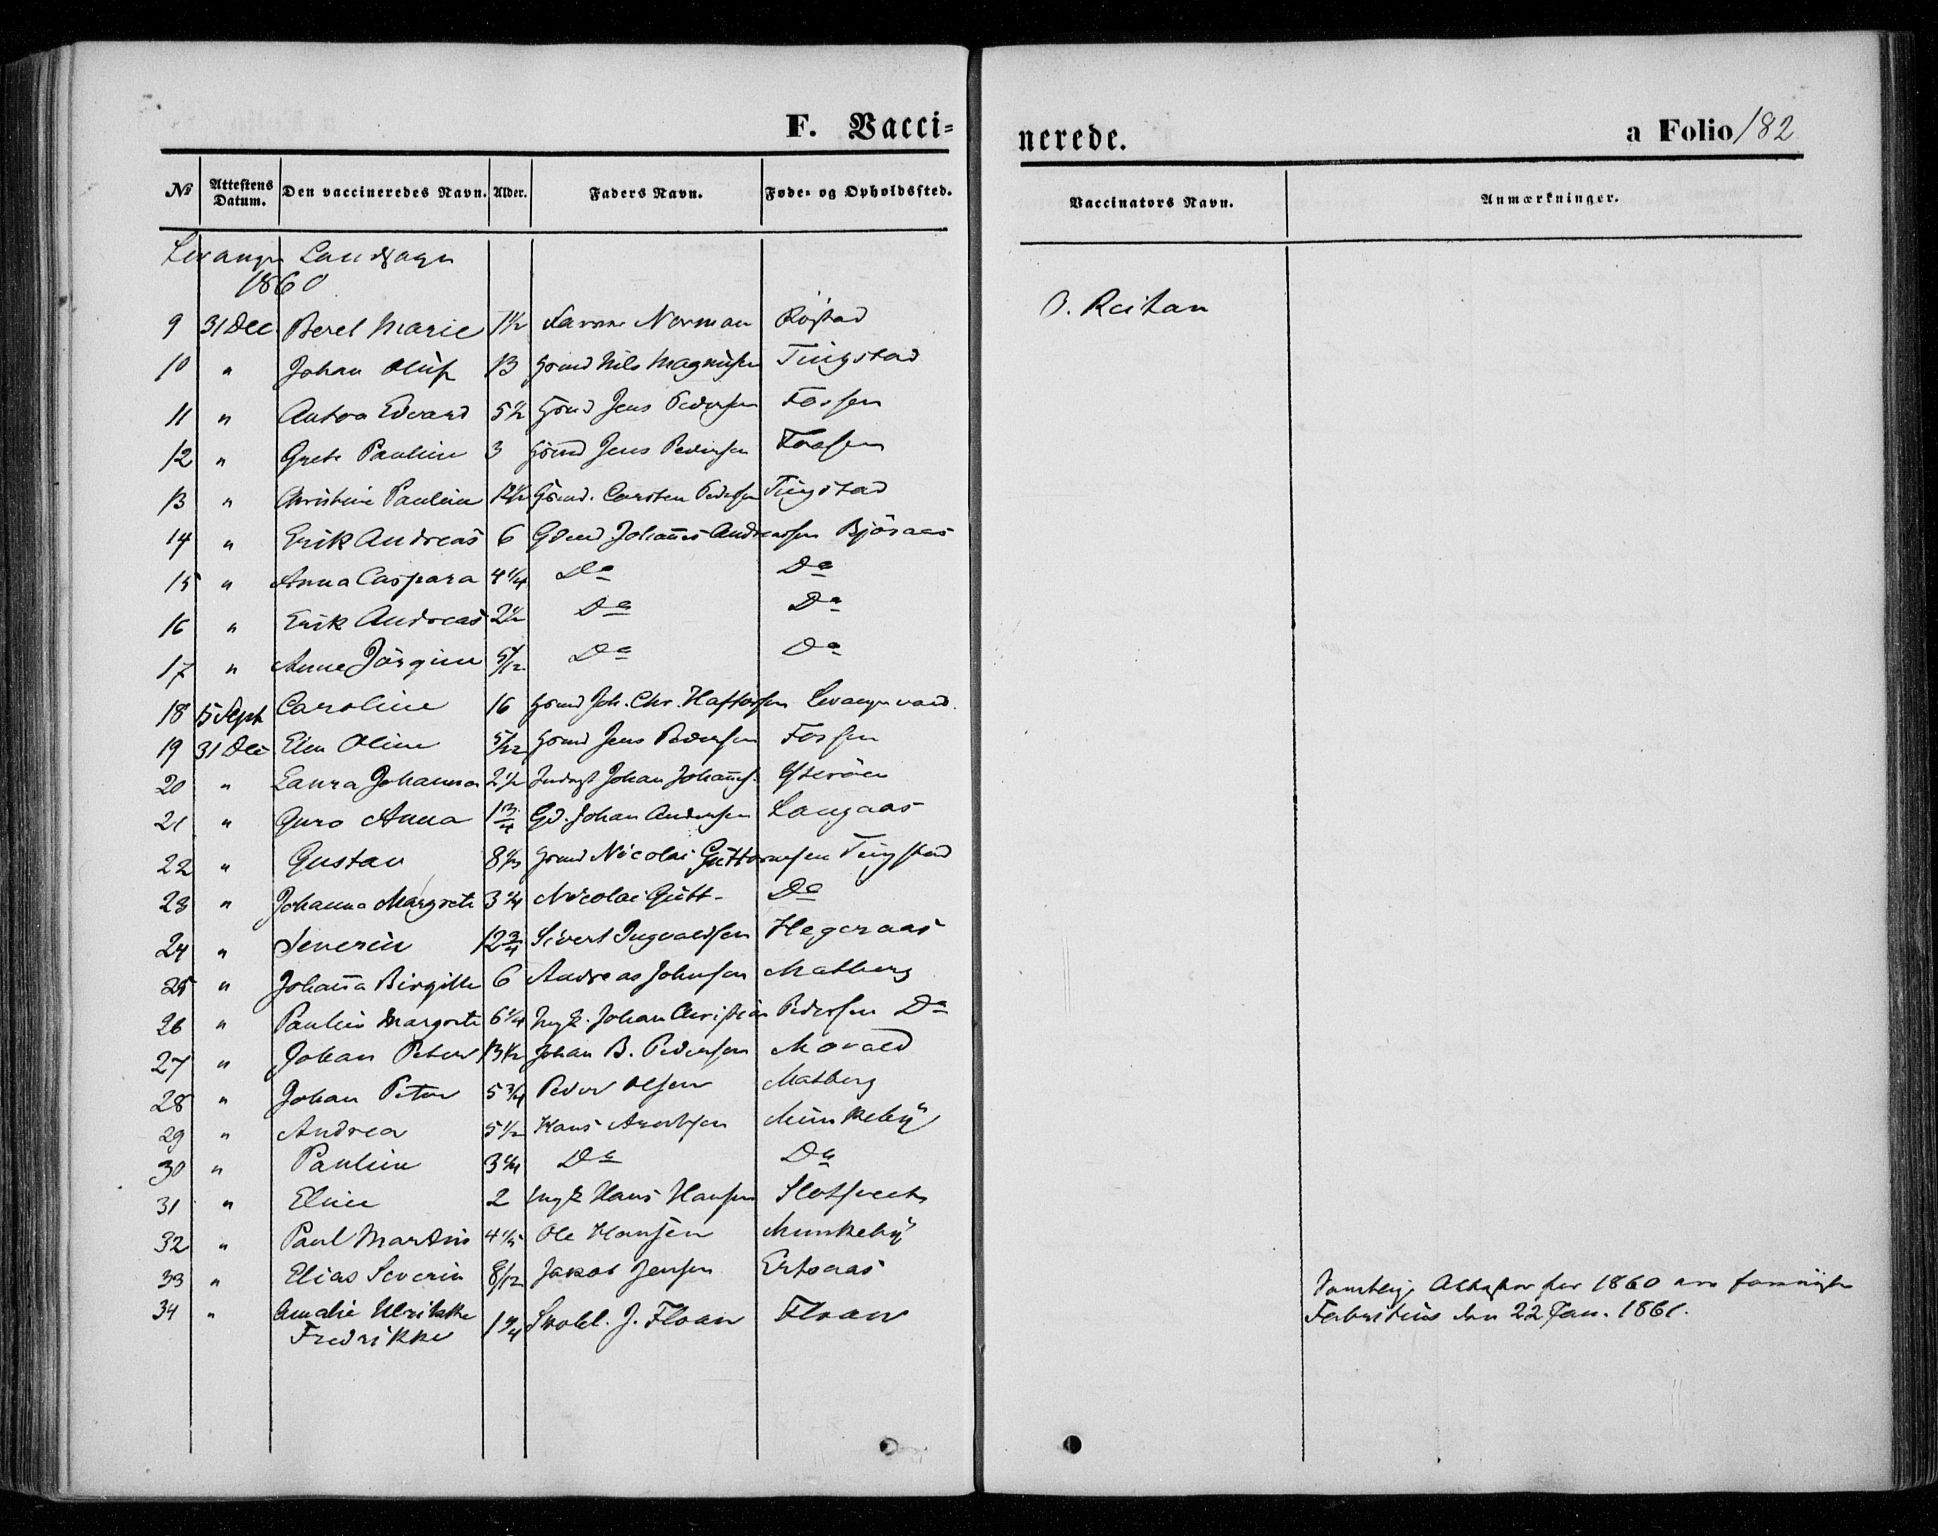 F. Vacci=
nerede.
a Folio 182
No
Attestens Datum.
Den vaccineredes Navn.
Alder.
Faders Navn.
Føde- og Opholdssted.
Vaccinators Navn.
Anmærkninger.
Levanger Landsogn
1860
9 31 Dec Beret Marie 1½ Norman Røstad O. Reitan
10 " Johan Oluf 13 Gbmd Nils Magnusen Tingstad
11 " Anton Edvard 5½ Gbmd Jens Pedersen Fossen
12 " Grete Pauline 3 Gbmd Jens Pedersen Fossen
13 " Christine Pauline 12½ Gbmd. Carsten Pedersen Tingstad
14 " Erik Andreas 6 Johanes Andreassen Bjøraas
15 " Anna Caspara 4¼ Do Do
16 " Erik Andreas 2½ Do Do
17 " Anne Jörgine 5/12 Do Do
18 15 Sept Caroline 16 Gbmd Joh. Chr. Haftorsen
19 31 Dec Elen Oline 5/12 Gbmd Jens Pedersen Fossen
20 " Laura Johanna 2½ Johan Johans. Ytterøen
21 " Guro Anna 1¾ Gd. Johan Andersen Langaas
22 " Gustav 8⅓ Gbmd Nicolai Guttormsen Tingstad
23 " Johanna Margrete 3¼ Nicolai Gutt- Do
24 " Severin 12¾ Sivert Ingvaldsen Hegeraas
25 " Johaña Birgitte 6 Andreas Johnsen Matberg
26 " Pauline Margrete 6¼ Johan Christian Pedersen Do
27 " Johan Peter 13½ Johan B. Pedersen Movald
28 " Johan Peter 5¾ Peder Olsen Matberg
29 " Andrea 5½ Hans Munkeby
30 " Pauline 3¾ Do Do
31 " Eline 2 Hans Hansen
32 " Paul Martin Ole Hansen Munkeby
33 " Elias Severin 8/12 Jakob Jensen Ertsaas
34 " Amalie Ulrikke J. Floan Floan
Fredrikke
for 1860
den 22 Jan. 1861.